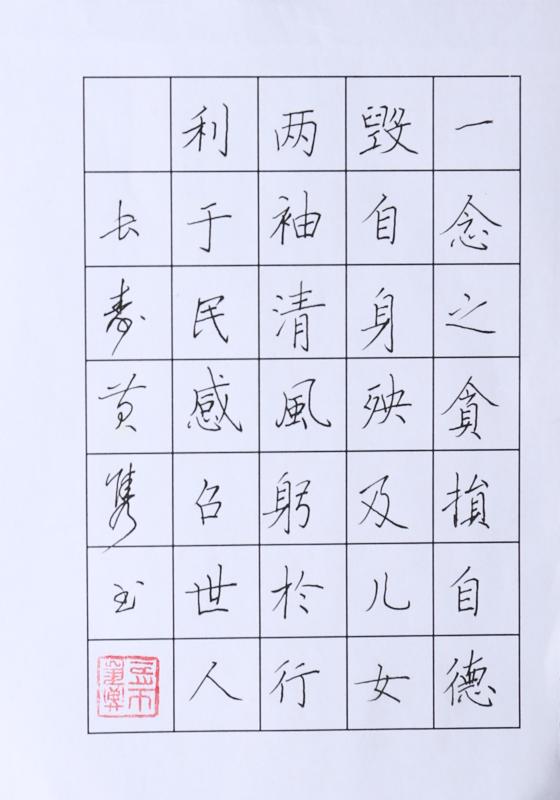 一念之貪損自德
毀自身殃及儿女
两袖清風躬於行
利于民感召世人
长寿黄隽书